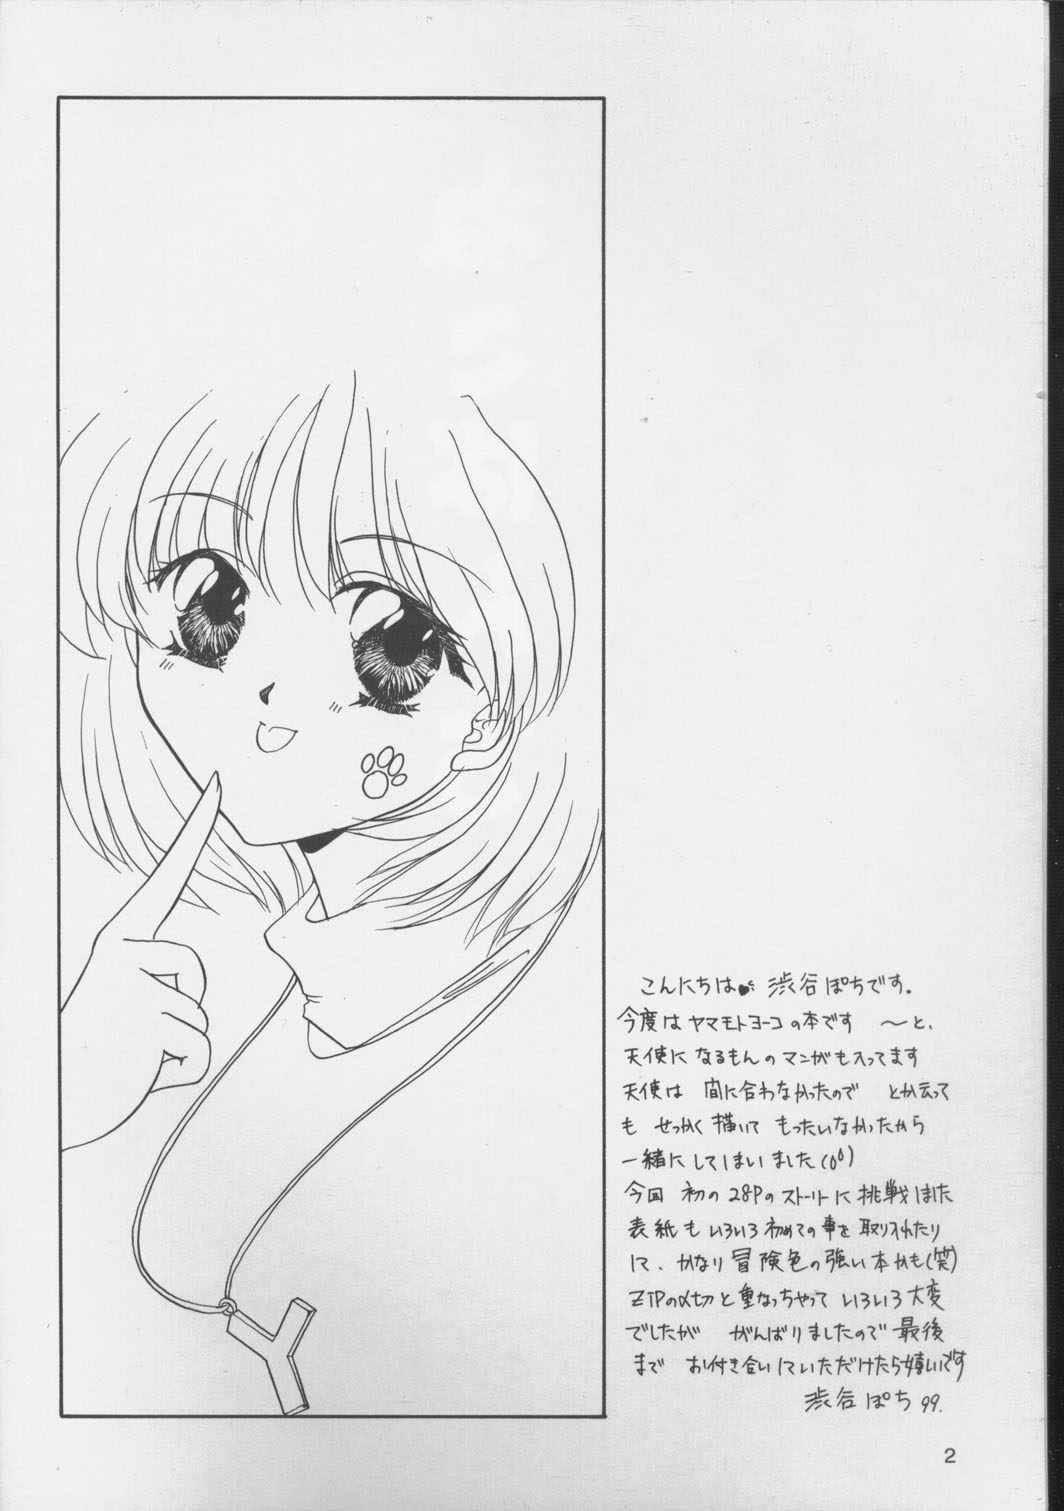 こんにちは♥ 渋谷ぽちです。
今度は ヤマモトヨーコの本です ～と、
天使に なるもん のマンガも入ってます
天使は 間に合わなかったので とか云って
も せっかく描いて もったいなかったから
一緒にしてしまいました
今回 初の 28Pのストーリーに挑戦しました
表紙も いろいろ初めての事を取り入れたり
して、かなり冒険色の強い本かも(笑)
ZIPの〆切と重なっちゃって いろいろ大変
でしたが がんばりましたので 最後
まで お付き合いしていただけたら嬉しいです
渋谷ぽち 99.
2